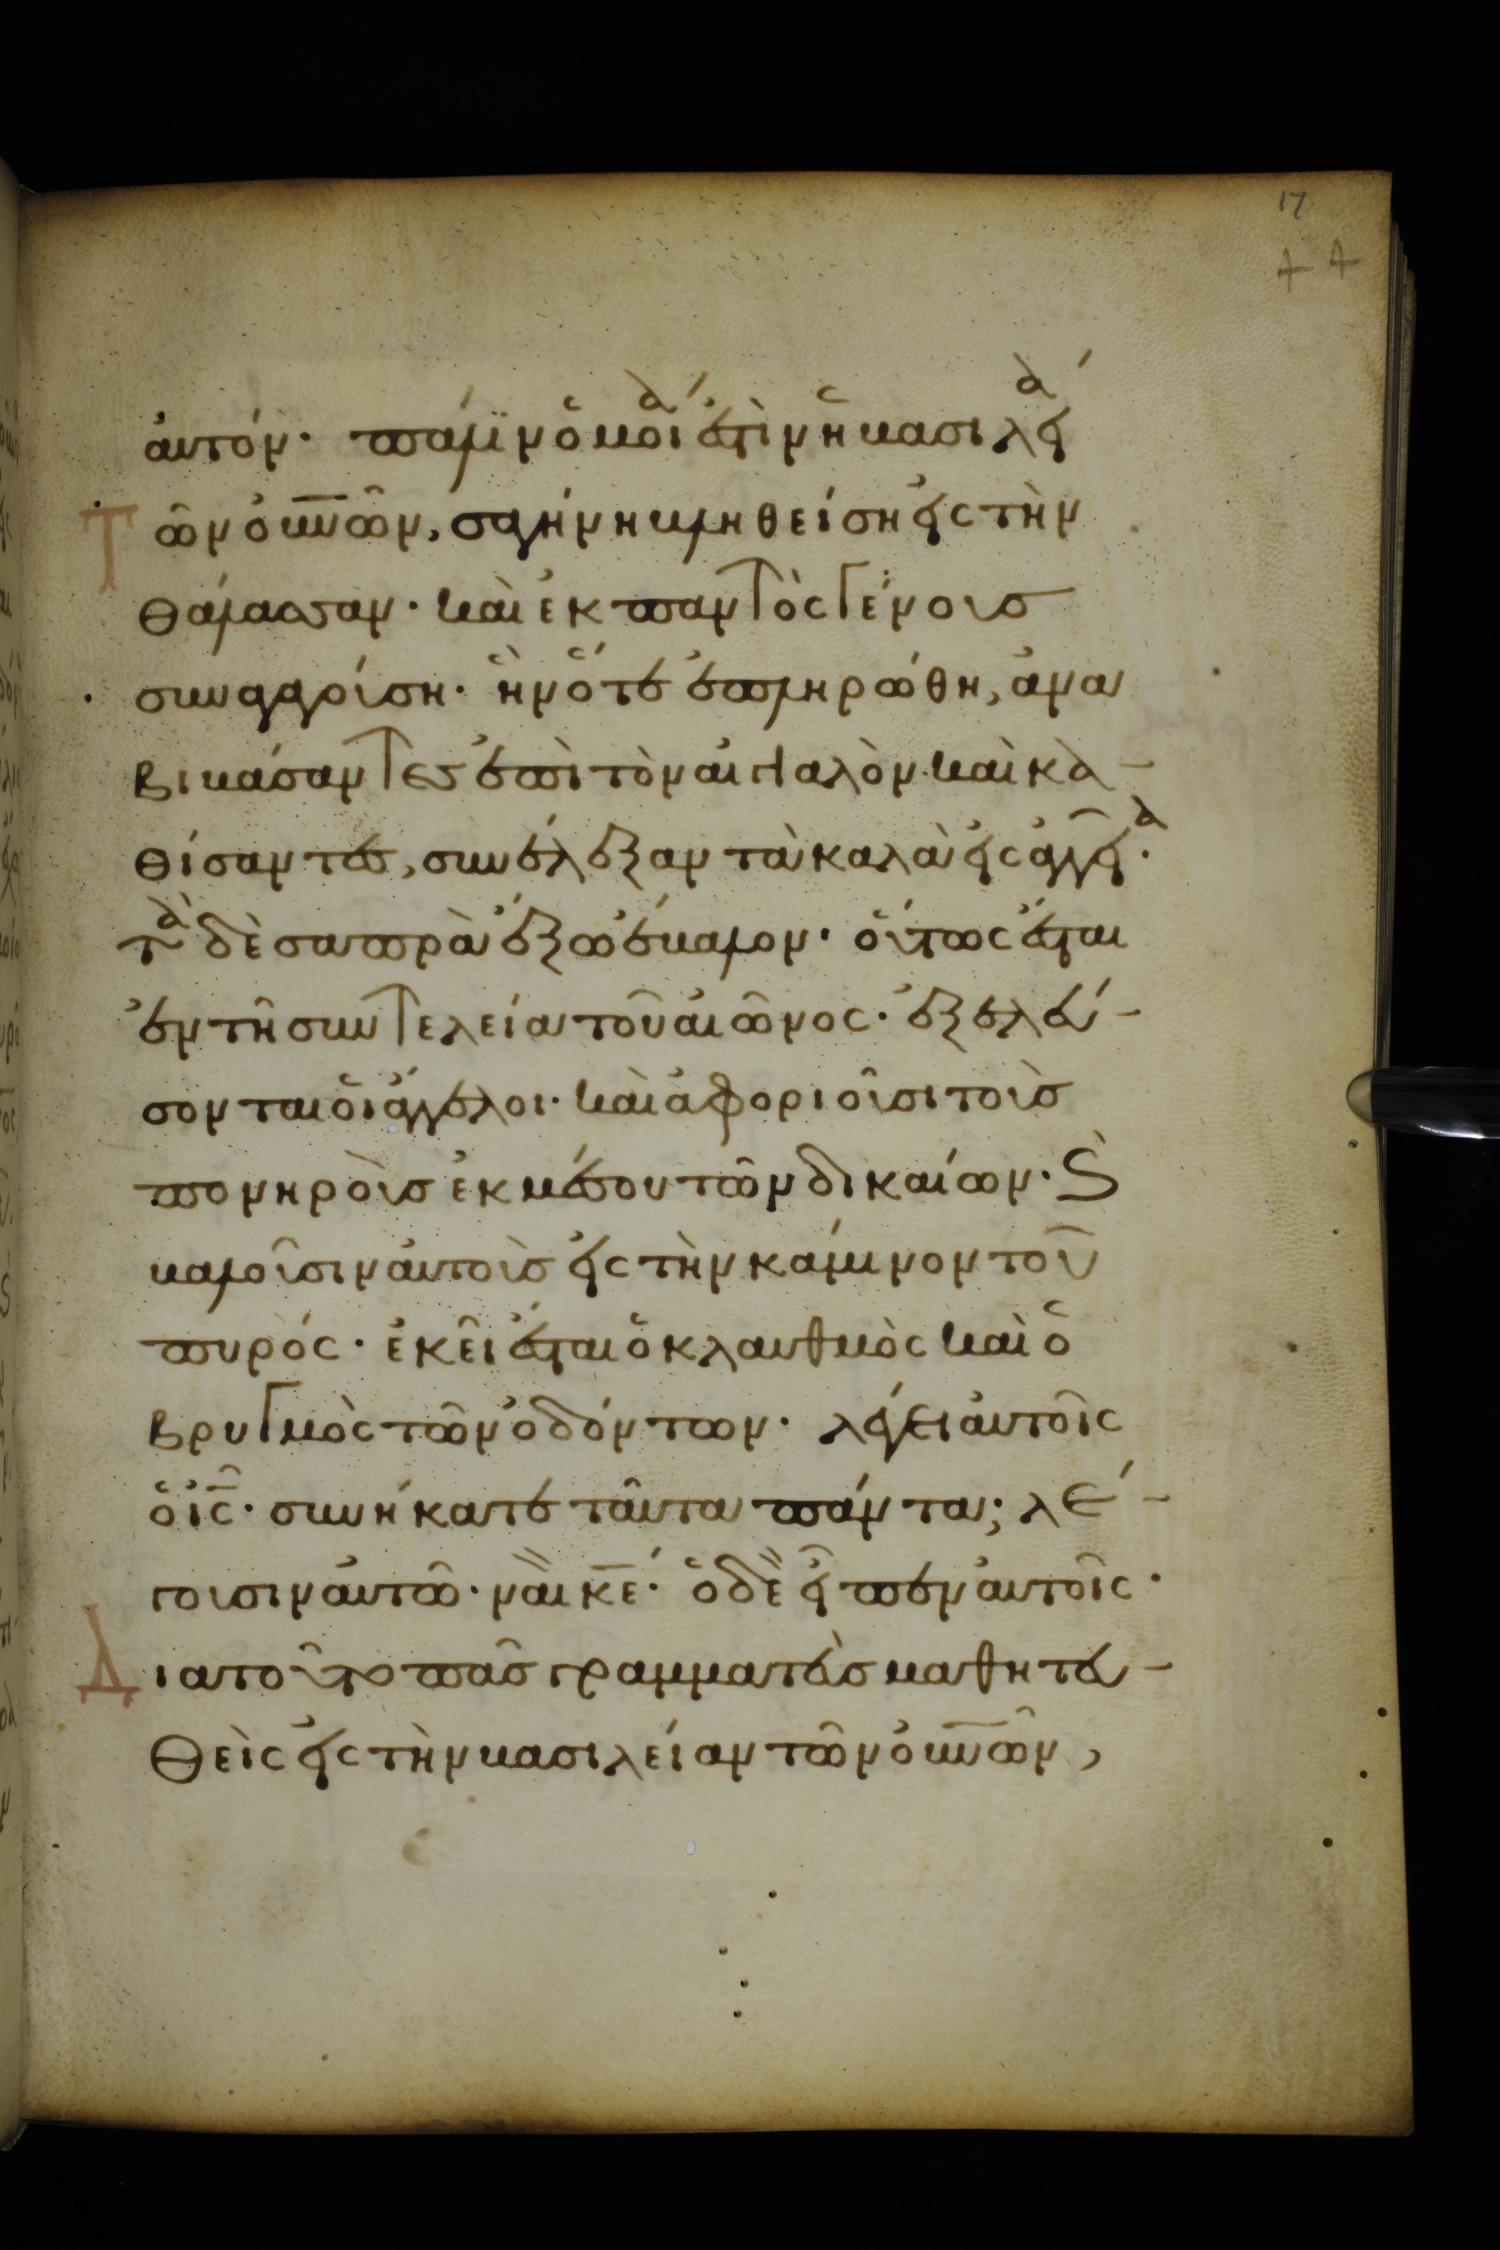 17
ἀυτόν· πάλϊν ὁμοία ἐστὶν ἡ βασιλεία
Τῶν οὐνῶν, σαγήνη βληθείση εἰς τὴν
θάλασσαν· καὶ ἐκ παντὸς γένους
συναγαγούση· ἣν ὅτε ἐπληρώθη, ἀνα
βιβάσαντες ἐπὶ τὸν αἰγιαλὸν· καὶ κα
θίσαντες, συνέλεξαν τὰ καλὰ εἰς ἀγγεῖα·
τὰ δὲ σαπρὰ ἔξω ἔβαλον· οὕτως ἔσται
ἐν τῇ συντελεία τοῦ αἰῶνος· ἐξελεύ
σονται οἱ ἄγγελοι· καὶ ἀφοριοῦσι τοὺς
πονηροὺς ἐκ μέσου τῶν δικαίων· ϗ
βαλοῦσιν ἀυτοὺς εἰς τὴν κάμινον τοῦ
πυρός· ἐκεῖ ἔσται ὁ κλαυθμὸς καὶ ὁ
βρυγμὸς τῶν ὀδόντων· λέγει ἀυτοῖς
ὁ ις· συνήκατε ταῦτα πάντα; λέ
γουσιν ἀυτῶ· ναὶ κε· ὁ δὲ εἶπεν ἀυτοῖς·
Δια τοῦτο πᾶς γραμματεὺς μαθητευ
θεὶς εἰς τὴν βασιλείαν τῶν οὐνῶν,